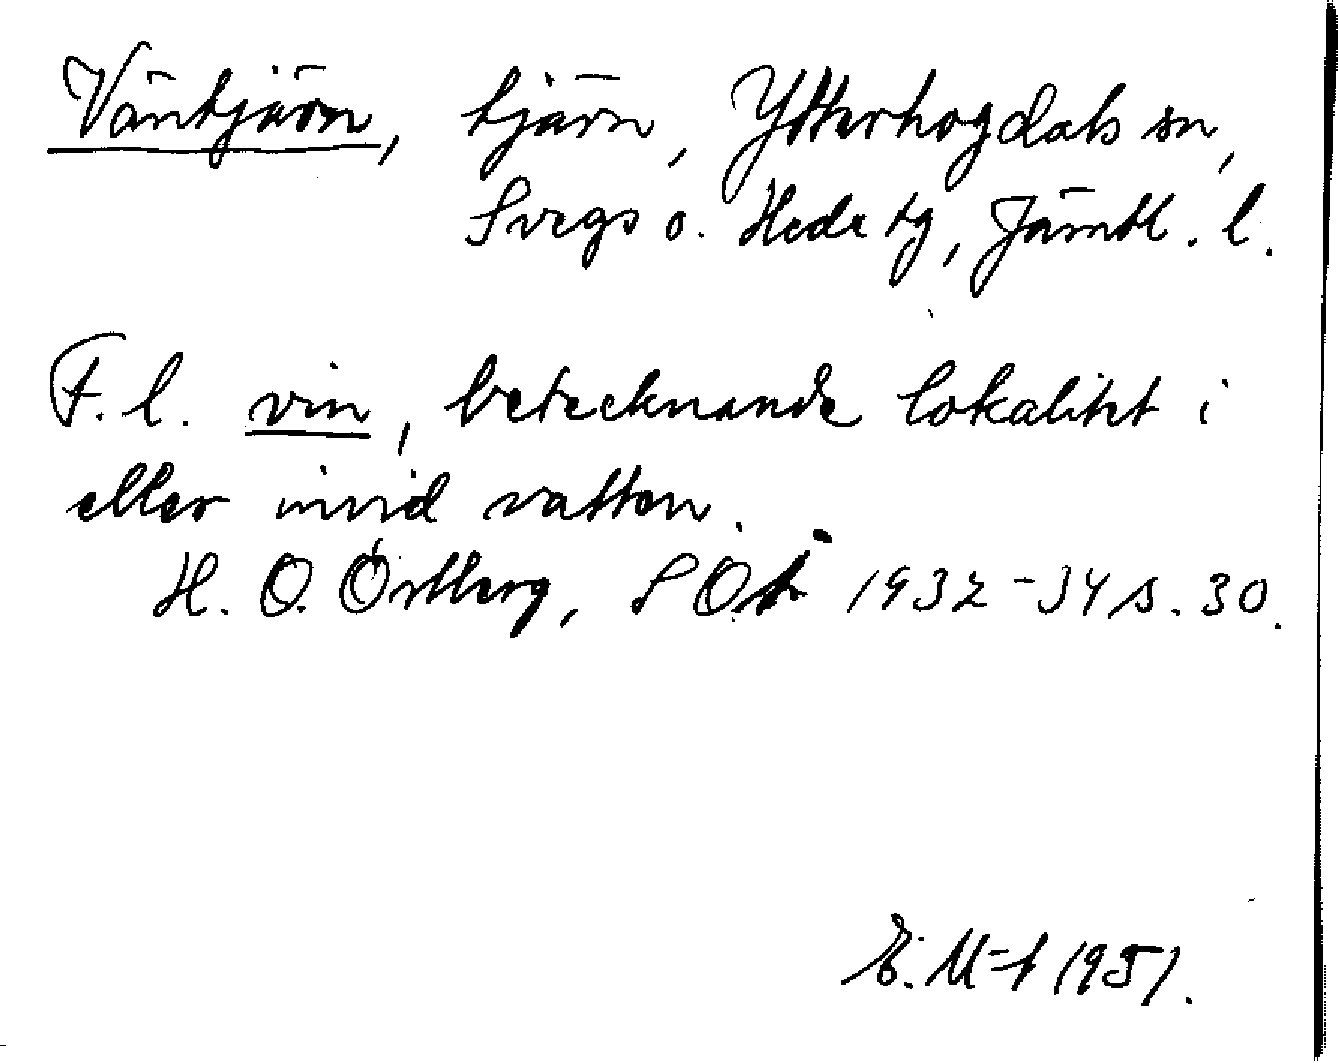 Väntjärn, tjärn, Ytterhogdals sn,
Svegs o. Hede tg, Jämtl. l.
F. l. vin, betecknande lokalitet i
eller invid vatten.
H. O. Östberg, SOÅ 1932-34 s. 30.
E. M-t 1951.